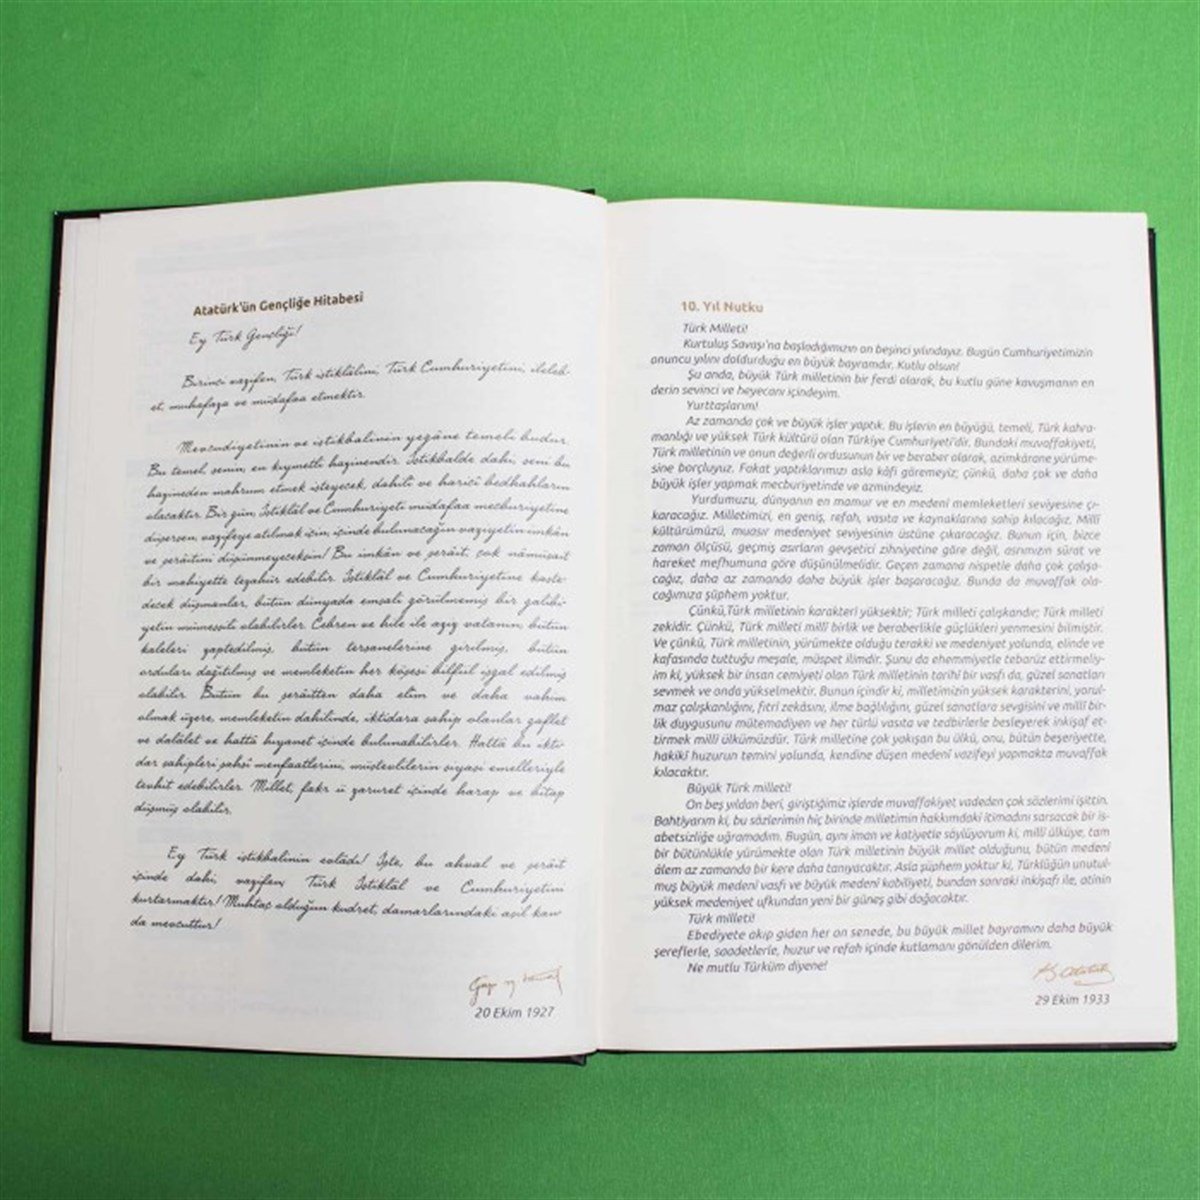 Atatürk'ün Gençliğe Hitabesi
Ey Türk Gençliği!
Birinci vazifen, Türk istiklâlini, Türk Cumhuriyetini, ileleb-
et, muhafaza ve müdafaa etmektir.
Mevcudiyetinin ve istikbalinin yegâne temeli budur.
Bu temel, senin, en kıymetli hazinendir. İstikbalde dahi, seni bu
hazineden mahrum etmek isteyecek, dahilî ve haricî bedhahların
olacaktır. Bir gün, İstiklâl ve Cumhuriyeti müdafaa mecburiyetine
düşersen, vazifeye atılmak için, içinde bulunacağın vaziyetin imkân
ve şerâitini düşünmeyeceksin! Bu imkân ve şerâit, çok nâmüsait
bir mahiyette tezahür edebilir. İstiklâl ve Cumhuriyetine kaste-
decek düşmanlar, bütün dünyada emsali görülmemiş bir galibi-
yetin mümessili olabilirler. Cebren ve hile ile aziz vatanın, bütün
kaleleri zaptedilmiş, bütün tersanelerine girilmiş, bütün
orduları dağıtılmış ve memleketin her köşesi bilfiil işgal edilmiş
olabilir. Bütün bu şerâitten daha elîm ve daha vahim
olmak üzere, memleketin dahilinde, iktidara sahip olanlar gaflet
ve dalâlet ve hattâ hıyanet içinde bulunabilirler. Hattâ bu ikti-
dar sahipleri şahsî menfaatlerini, müstevlilerin siyasi emelleriyle
tevhit edebilirler. Millet, fakr ü zaruret içinde harap ve bîtap
düşmüş olabilir.
Ey Türk istikbalinin evlâdı! İşte, bu ahval ve şerâit
içinde dahi, vazifen, Türk İstiklâl ve Cumhuriyetini
kurtarmaktır! Muhtaç olduğun kudret, damarlarındaki asil kan-
da mevcuttur!
20 Ekim 1927
10. Yıl Nutku
Türk Milleti!
Kurtuluş Savaşı'na başladığımızın on beşinci yılındayız. Bugün Cumhuriyetimizin
onuncu yılını doldurduğu en büyük bayramdır. Kutlu olsun!
Şu anda, büyük Türk milletinin bir ferdi olarak, bu kutlu güne kavuşmanın en
derin sevinci ve heyecanı içindeyim.
Yurttaşlarım!
Az zamanda çok ve büyük işler yaptık. Bu işlerin en büyüğü, temeli, Türk kahra-
manlığı ve yüksek Türk kültürü olan Türkiye Cumhuriyeti'dir. Bundaki muvaffakiyeti,
Türk milletinin ve onun değerli ordusunun bir ve beraber olarak, azimkârane yürüme-
sine borçluyuz. Fakat yaptıklarımızı asla kâfi göremeyiz; çünkü, daha çok ve daha
büyük işler yapmak mecburiyetinde ve azmindeyiz.
Yurdumuzu, dünyanın en mamur ve en medeni memleketleri seviyesine çı-
karacağız. Milletimizi, en geniş, refah, vasıta ve kaynaklarına sahip kılacağız. Millî
kültürümüzü, muasır medeniyet seviyesinin üstüne çıkaracağız. Bunun için, bizce
zaman ölçüsü, geçmiş asırların gevşetici zihniyetine göre değil, asrımızın sürat ve
hareket mefhumuna göre düşünülmelidir. Geçen zamana nispetle daha çok çalışa-
cağız, daha az zamanda daha büyük işler başaracağız. Bunda da muvaffak ola-
cağımıza şüphem yoktur.
Çünkü,Türk milletinin karakteri yüksektir; Türk milleti çalışkandır; Türk milleti
zekidir. Çünkü, Türk milleti millî birlik ve beraberlikle güçlükleri yenmesini bilmiştir.
Ve çünkü, Türk milletinin, yürümekte olduğu terakki ve medeniyet yolunda, elinde ve
kafasında tuttuğu meşale, müspet ilimdir. Şunu da ehemmiyetle tebarüz ettirmeliy-
im ki, yüksek bir insan cemiyeti olan Türk milletinin tarihî bir vasfı da, güzel sanatları
sevmek ve onda yükselmektir. Bunun içindir ki, milletimizin yüksek karakterini, yorul-
maz çalışkanlığını, fıtri zekâsını, ilme bağlılığını, güzel sanatlara sevgisini ve millî bir-
lik duygusunu mütemadiyen ve her türlü vasıta ve tedbirlerle besleyerek inkişaf et-
tirmek millî ülkümüzdür. Türk milletine çok yakışan bu ülkü, onu, bütün beşeriyette,
hakikî huzurun temini yolunda, kendine düşen medenî vazifeyi yapmakta muvaffak
kılacaktır.
Büyük Türk milleti!
On beş yıldan beri, giriştiğimiz işlerde muvaffakiyet vadeden çok sözlerimi işittin.
Bahtiyarım ki, bu sözlerimin hiç birinde milletimin hakkımdaki itimadını sarsacak bir is-
abetsizliğe uğramadım. Bugün, aynı iman ve katiyetle söylüyorum ki, millî ülküye, tam
bir bütünlükle yürümekte olan Türk milletinin büyük millet olduğunu, bütün medenî
âlem az zamanda bir kere daha tanıyacaktır. Asla şüphem yoktur ki, Türklüğün unutul-
muş büyük medenî vasfı ve büyük medenî kabiliyeti, bundan sonraki inkişafı ile, atinin
yüksek medeniyet ufkundan yeni bir güneş gibi doğacaktır.
Türk milleti!
Ebediyete akıp giden her on senede, bu büyük millet bayramını daha büyük
şereflerle, saadetlerle, huzur ve refah içinde kutlamanı gönülden dilerim.
Ne mutlu Türküm diyene!
K. Atatürk
29 Ekim 1933